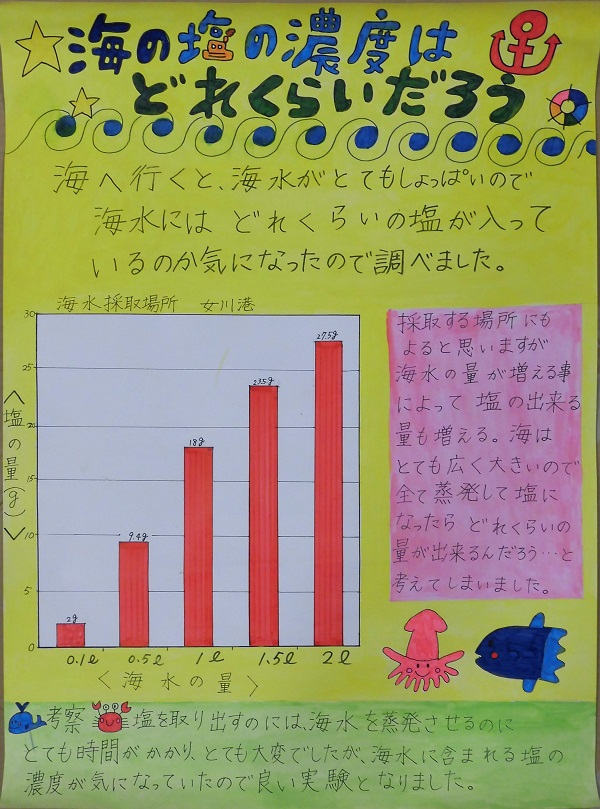 海の塩の濃度は
どれくらいだろう
海へ行くと、海水がとてもしょっぱいので
海水には どれくらいの塩が入って
いるのか気になったので調べました。
海水採取場所 女川港
30
25
20
15
10
5
0
〈塩の量(g)〉
2g
9.4g
18g
23.5g
27.5g
0.1ℓ 0.5ℓ 1ℓ 1.5ℓ 2ℓ
〈海水の量〉
採取する場所にも
よると思いますが
海水の量が増える事
によって 塩の出来る
量も増える。海は
とても広く大きいので
全て蒸発して塩に
なったら どれくらいの
量が出来るんだろう…と
考えてしまいました。
考察 塩を取り出すのには、海水を蒸発させるのに
とても時間がかかり、とても大変でしたが、海水に含まれる塩の
濃度が気になっていたので良い実験となりました。